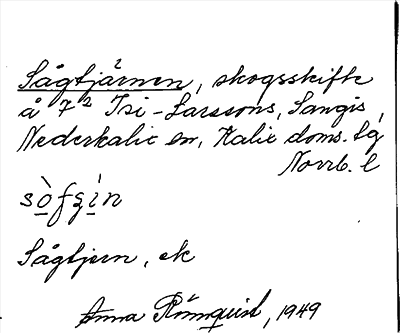 Sågtjärnen, skogsskifte
å 7² Isi-Larssons, Sangis,
Nederkalix sn, Kalix doms. Lg
Norrb. l
sòfgín
Sågtjern, ek
Anna Rönnquist, 1949